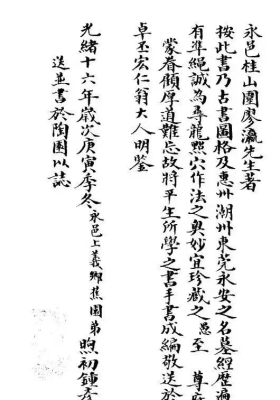 永邑桂山園廖瀛先生著
按此書乃古書圖格及惠州潮州東莞永安之名墓經歷遍
有準繩誠為尋龍點穴作法之奥妙宜珍藏之愚至 尊府
蒙眷顧厚道難忘故將平生所學之書手書成編敬送於
卓丕宏仁翁大人明鑒
光緒十六年歲次庚寅季冬永邑上義鄉蕉園弟煦初鍾
送並書於陶園以誌